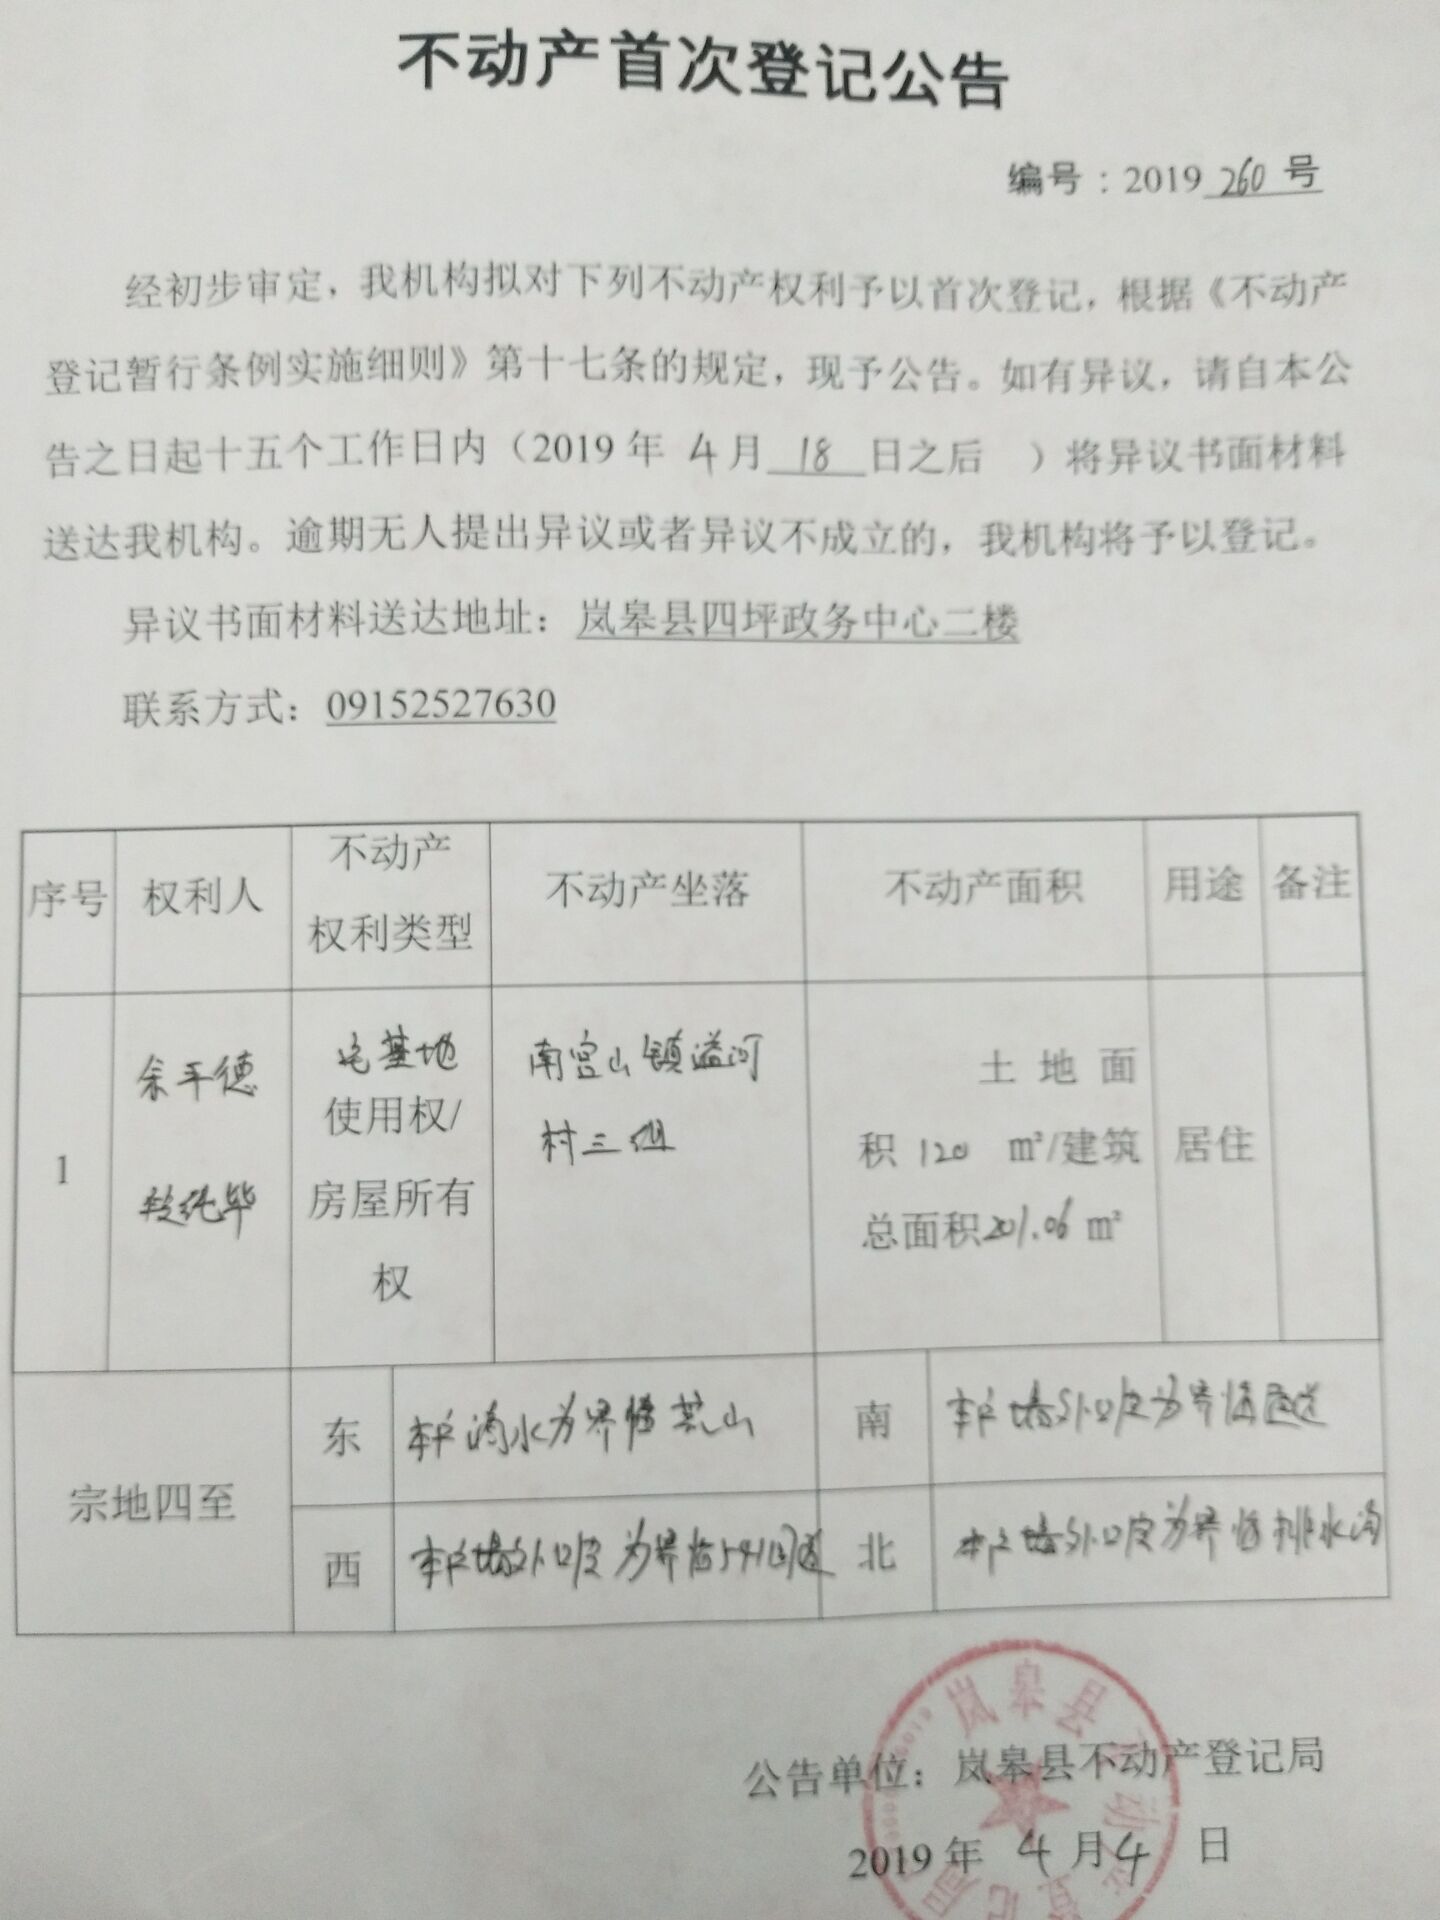 不动产首次登记公告
编号：2019 260 号
经初步审定，我机构拟对下列不动产权利予以首次登记，根据《不动产
登记暂行条例实施细则》第十七条的规定，现予公告。如有异议，请自本公
告之日起十五个工作日内（2019 年 4月 18 日之后 ）将异议书面材料
送达我机构。逾期无人提出异议或者异议不成立的，我机构将予以登记。
异议书面材料送达地址：岚皋县四坪政务中心二楼
联系方式：09152527630
序号 权利人 不动产 不动产坐落 不动产面积 用途 备注
权利类型
1 余平德 宅基地 南宫山镇溢河 土地面
使用权/ 村三组 积 120 ㎡/建筑 居住
房屋所有 总面积201.06 ㎡
权
宗地四至
东 本户滴水为界临荒山 南 本户墙外口皮为界临
西 本户墙外口皮为界临541国道 北 本户墙外口皮为界临排水沟
公告单位：岚皋县不动产登记局
2019 年 4 月 4 日
岚皋县 动产登记局